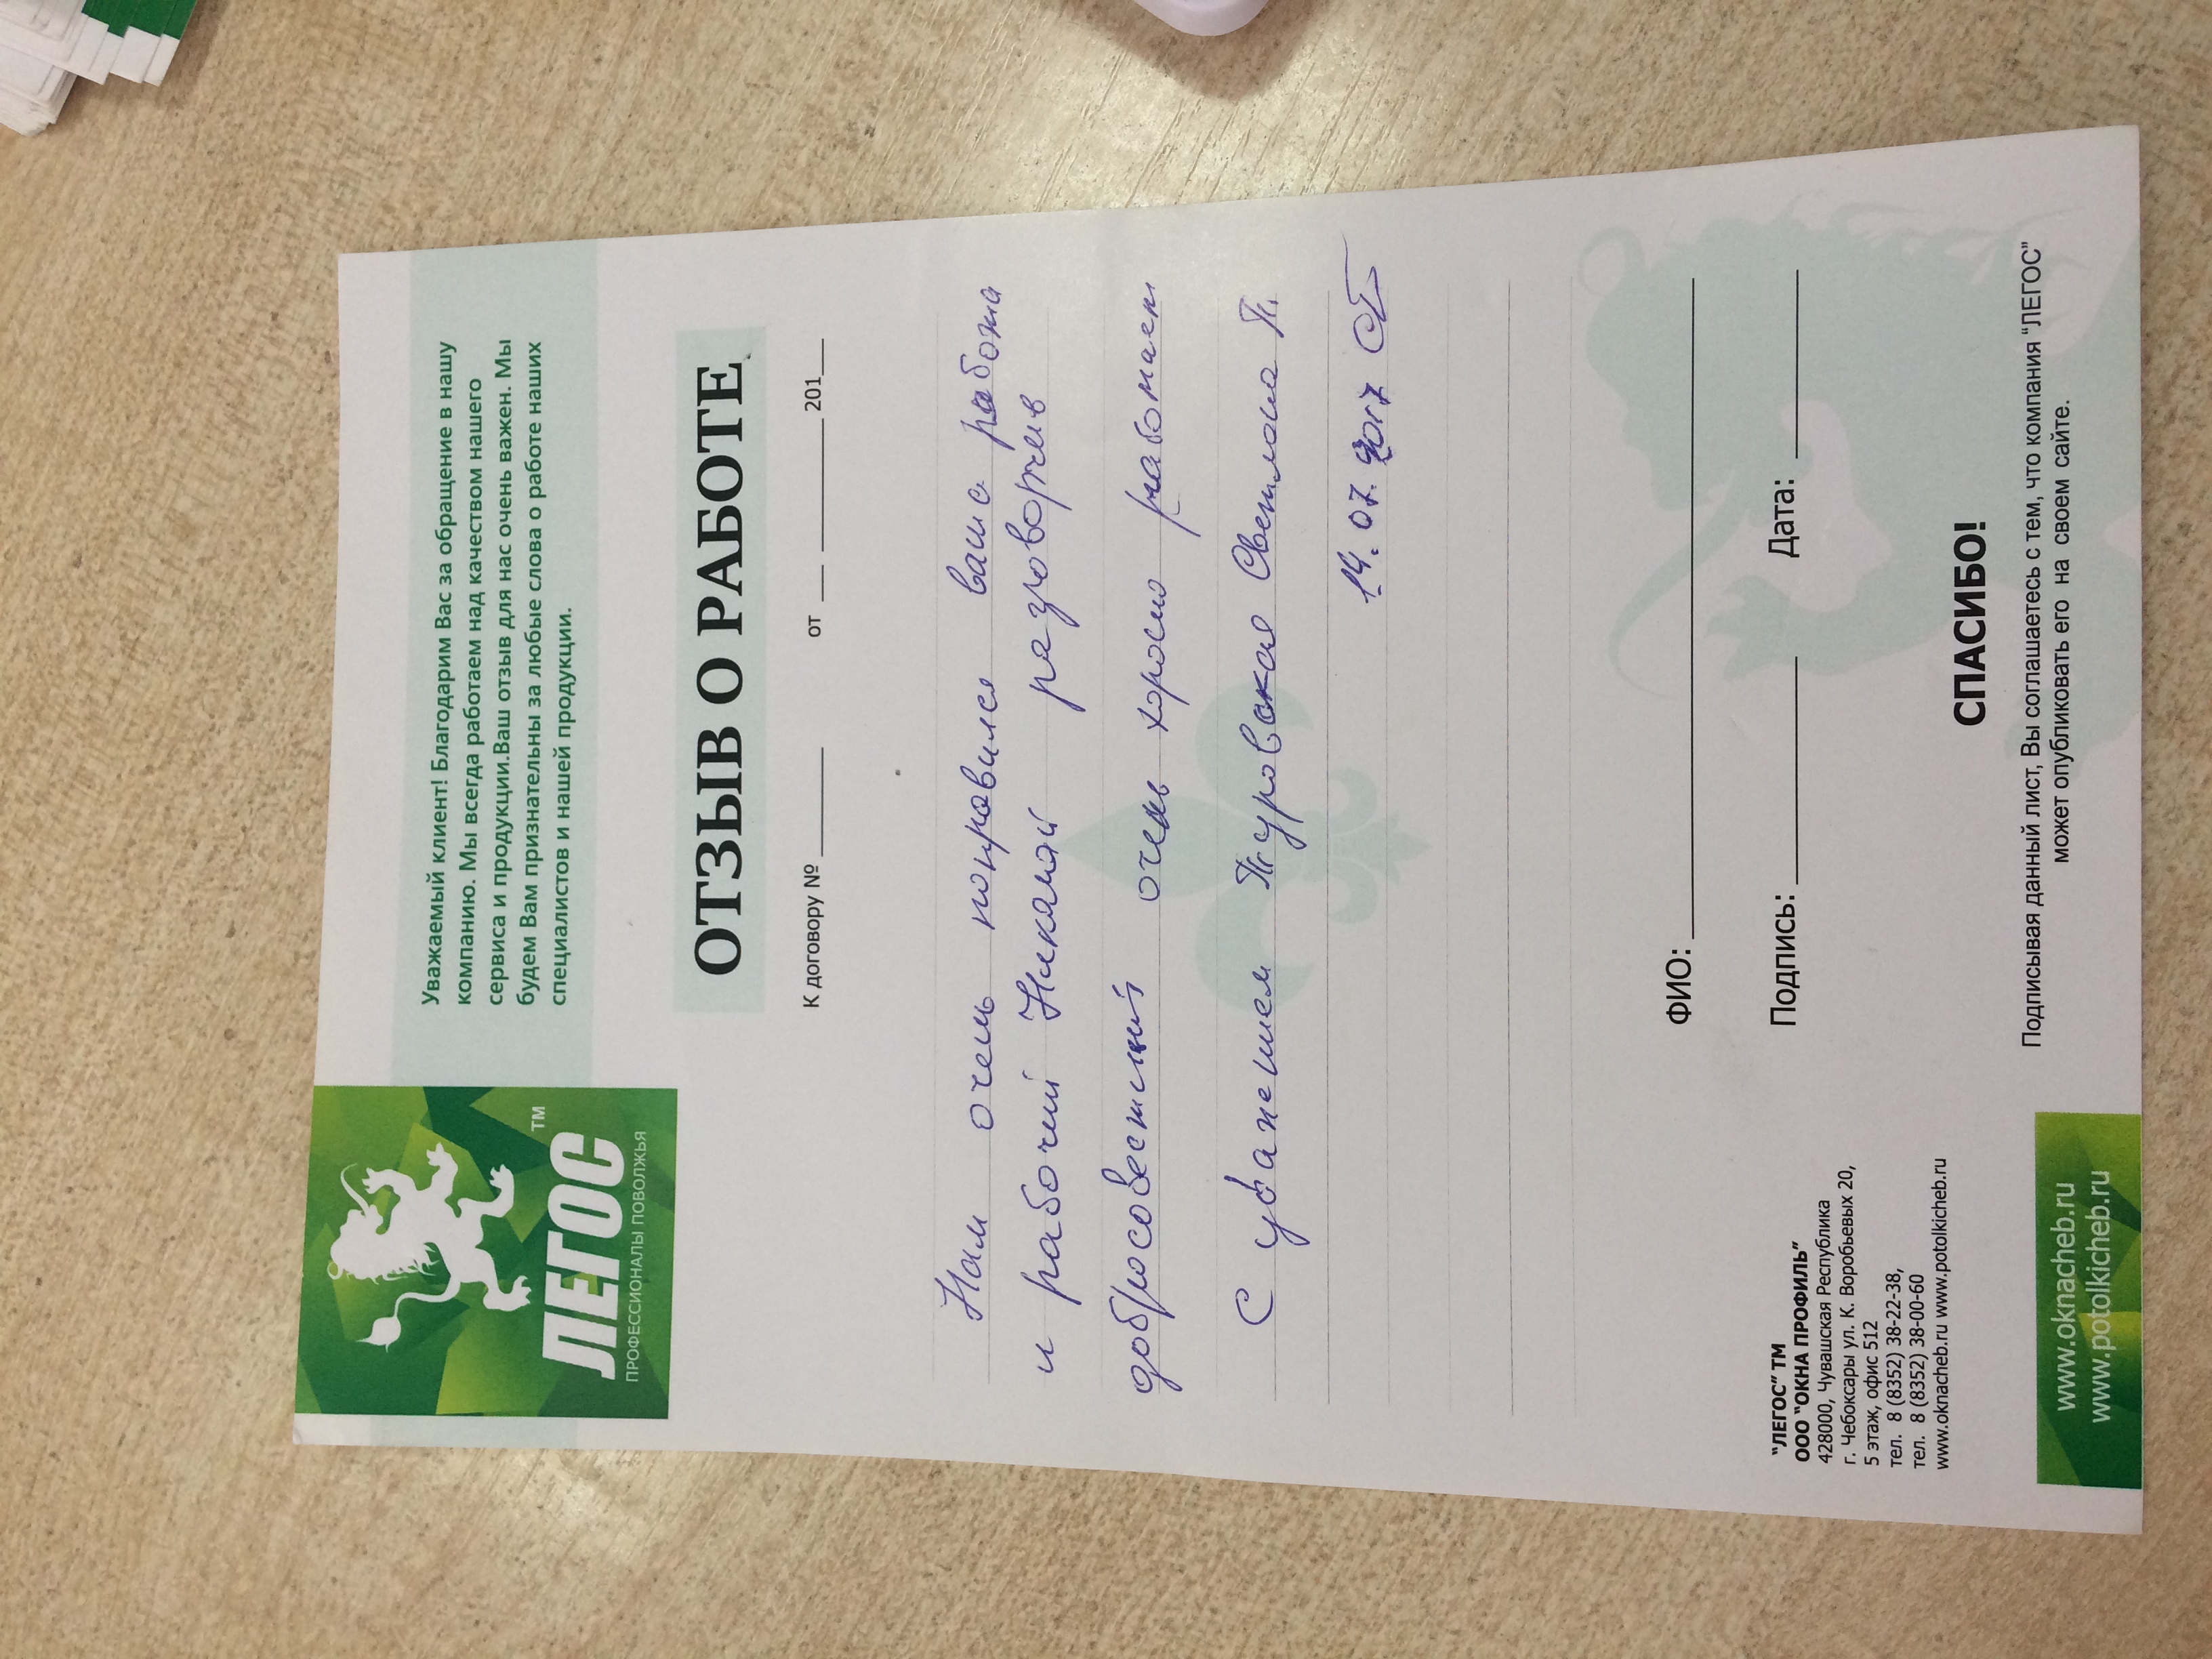 ЛЕГОС ™
ПРОФЕССИОНАЛЫ ПОВОЛЖЬЯ
Уважаемый клиент! Благодарим Вас за обращение в нашу
компанию. Мы всегда работаем над качеством нашего
сервиса и продукции.Ваш отзыв для нас очень важен. Мы
будем Вам признательны за любые слова о работе наших
специалистов и нашей продукции.
ОТЗЫВ О РАБОТЕ
К договору № ________ от ___ __________ 201___
Нам очень понравился ваша работа
и рабочий Николай разговорчив
добросовестный очень хорошо работает
С уважением Туровская Светлана П.
14.07.2017
ФИО: ____________________
Подпись: __________ Дата: __________
"ЛЕГОС" ТМ
ООО "ОКНА ПРОФИЛЬ"
428000, Чувашская Республика
г. Чебоксары ул. К. Воробьевых 20,
5 этаж, офис 512
тел. 8 (8352) 38-22-38,
тел. 8 (8352) 38-00-60
www.oknacheb.ru www.potolkicheb.ru
СПАСИБО!
Подписывая данный лист, Вы соглашаетесь с тем, что компания "ЛЕГОС"
может опубликовать его на своем сайте.
www.oknacheb.ru
www.potolkicheb.ru